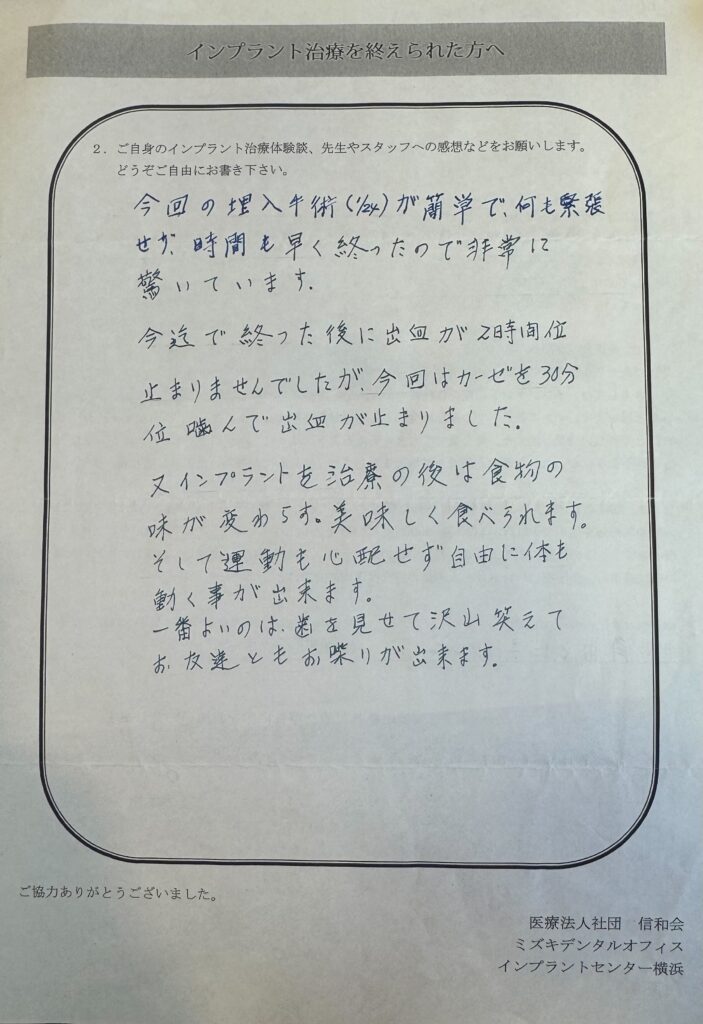 インプラント治療を終えられた方へ
2．ご自身のインプラント治療体験談、先生やスタッフへの感想などをお願いします。
どうぞご自由にお書き下さい。
今回の埋入手術(1/24)が簡単で、何も緊張
せず、時間も早く終ったので非常に
驚いています。
今迄で終った後に出血が2時間位
止まりませんでしたが、今回はガーゼを30分
位噛んで出血が止まりました。
又インプラントを治療の後は食物の
味が変わらず。美味しく食べられます。
そして運動も心配せず自由に体も
動く事が出来ます。
一番よいのは、歯を見せて沢山笑えて
お友達ともお喋りが出来ます。
ご協力ありがとうございました。
医療法人社団　信和会
ミズキデンタルオフィス
インプラントセンター横浜